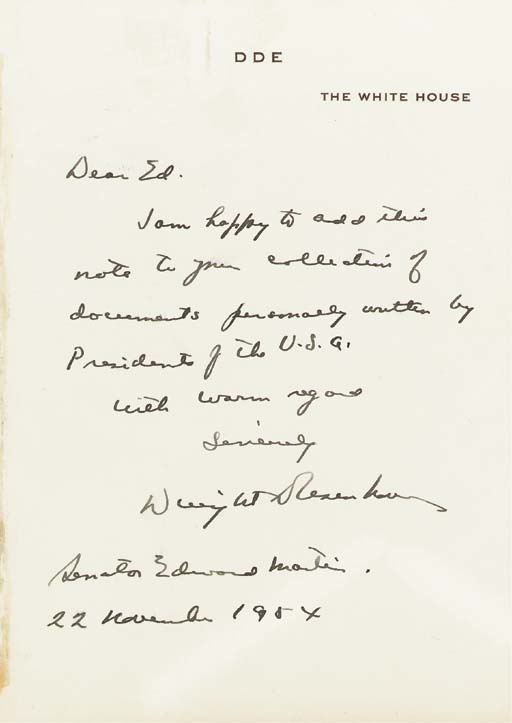 DDE
THE WHITE HOUSE
Dear Ed.
I am happy to add this
note to your collection of
documents personally written by
Presidents of the U.S.A.
With warm regard
Sincerely
Dwight D Eisenhower
Senator Edward Martin.
22 November 1954